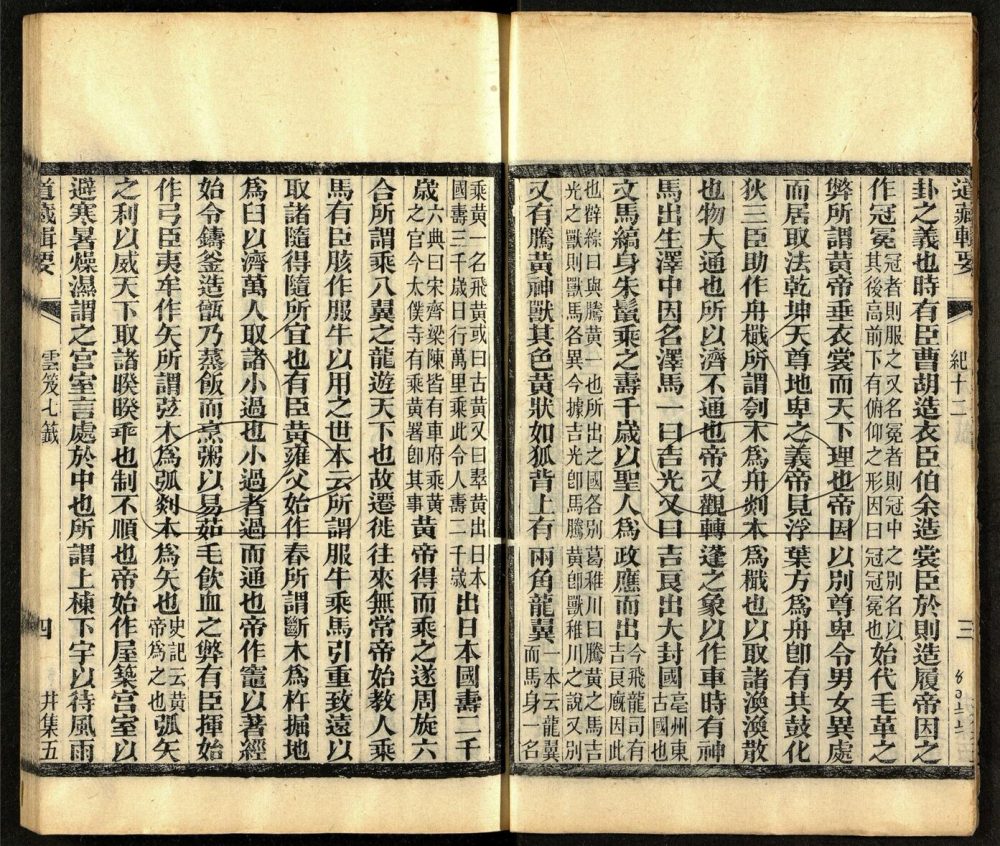 道藏輯要　紀十二　三
卦之義也時有臣曹胡造衣臣伯余造裳臣於則造履帝因之
作冠冕冠者則服之又名冕者則冠中之別名以其後高前下有俯仰之形因曰冠冠冕也始代毛革之
弊所謂黃帝垂衣裳而天下理也帝因以別尊卑令男女異處
而居取法乾坤天尊地卑之義帝見浮葉方為舟卽有共鼓化
狄三臣助作舟檝所謂刳木為舟剡木為檝也以取諸渙渙散
也物大通也所以濟不通也帝又觀轉蓬之象以作車時有神
馬出生澤中因名澤馬一曰吉光又曰吉良出大封國亳州東古國也
文馬縞身朱鬣乘之壽千歲以聖人為政應而出今飛龍司有吉良廐因此
也薛綜曰與騰黃一也所出之國各別葛稚川曰騰黃之馬吉光之獸則獸馬各異今據吉光卽馬騰黃卽獸稚川之說又別
又有騰黃神獸其色黃狀如狐背上有兩角龍翼一本云龍翼而馬身一名
乘黃一名飛黃或曰古黃又曰翠黃出日本國壽三千歲日行萬里乘此令人壽二千歲出日本國壽二千
歲六典曰宋齊梁陳皆有車府乘黃之官今太僕寺有乘黃署卽其事黃帝得而乘之遂周旋六
合所謂乘八翼之龍遊天下也故遷徙往來無常帝始教人乘
馬有臣胲作服牛以用之世本云所謂服牛乘馬引重致遠以
取諸隨得隨所宜也有臣黃雍父始作舂所謂斷木為杵掘地
為臼以濟萬人取諸小過也小過者過而通也帝作竈以著經
始令鑄釜造甑乃蒸飯而烹粥以易茹毛飲血之弊有臣揮始
作弓臣夷牟作矢所謂弦木為弧剡木為矢也史記云黃帝為之也弧矢
之利以威天下取諸暌暌乖也制不順也帝始作屋築宮室以
避寒暑燥濕謂之宮室言處於中也所謂上棟下宇以待風雨
道藏輯要　雲笈七籤　四　井集五